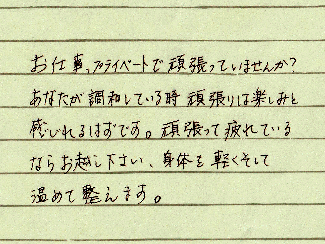 お仕事、プライベートで頑張っていませんか?
あなたが調和している時頑張りは楽しみと
感じれるはずです。頑張って疲れている
ならお越し下さい、身体を軽くそして
温めて整えます。